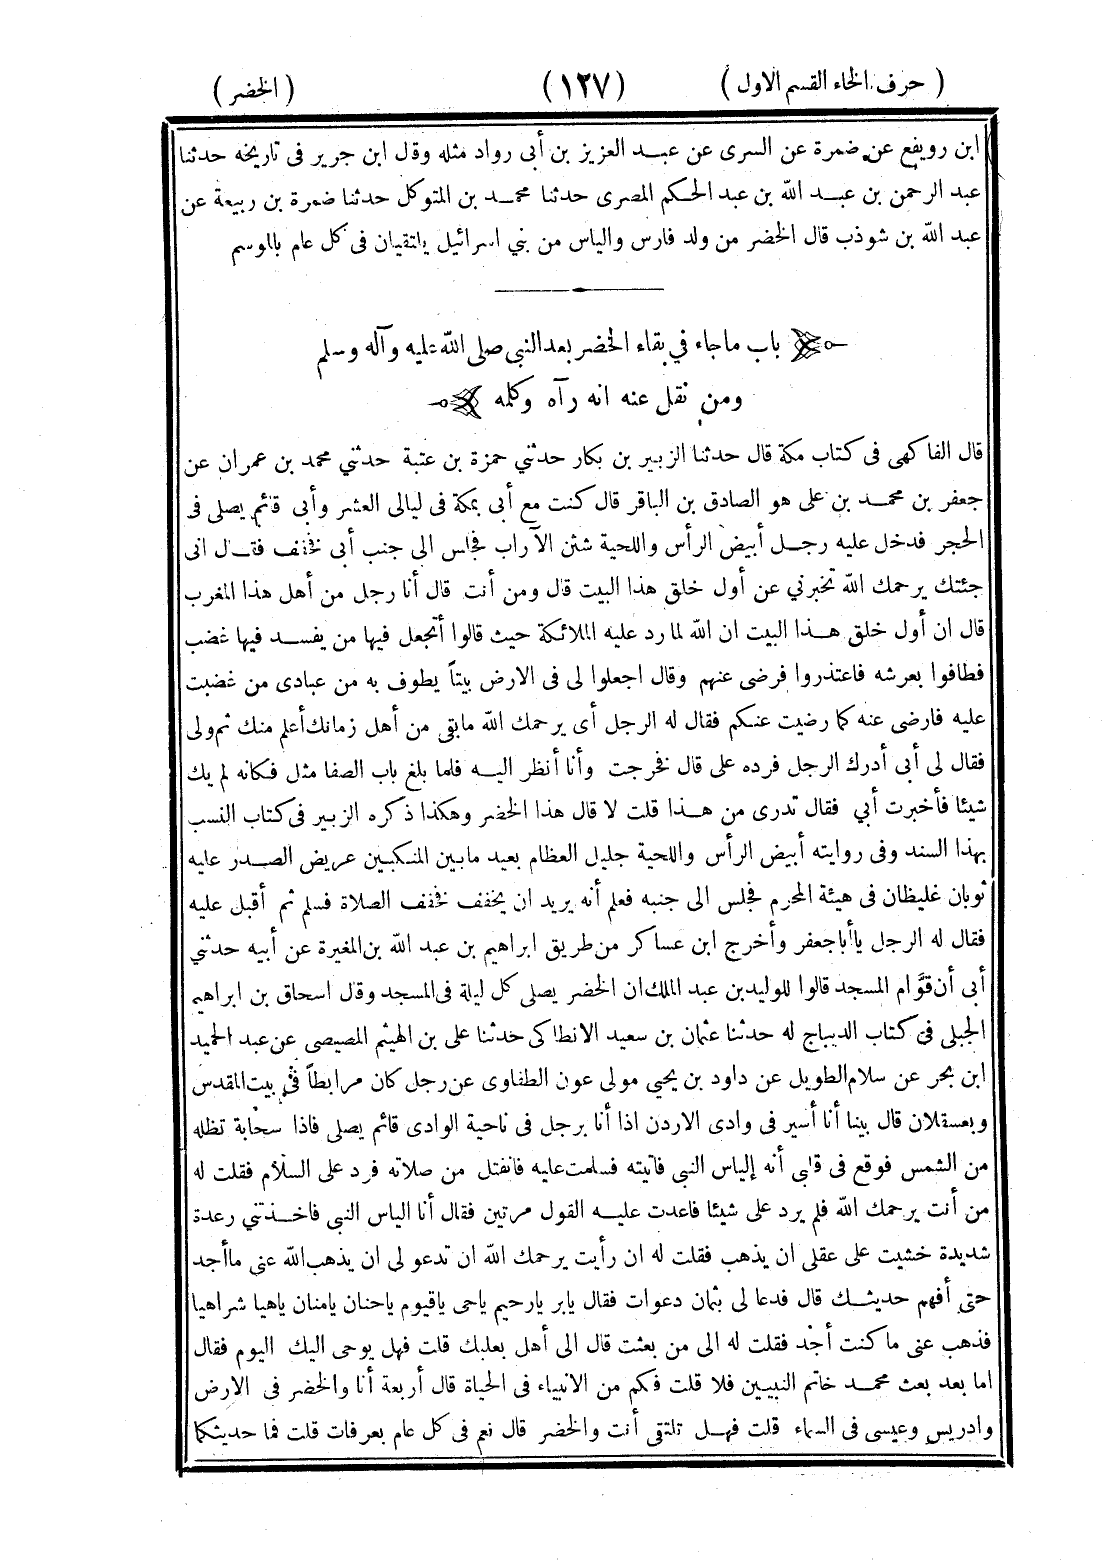 ( حرف الخاء القسم الاول ) (١٢٧) ( الخضر )
ابن رويفع عن ضمرة عن السرى عن عبد العزيز بن أبى رواد مثله وقل ابن جرير فى تاريخه حدثنا
عبد الرحمن بن عبد الله بن عبد الحكم المصرى حدثنا محمد بن المتوكل حدثنا ضمرة بن ربيعة عن
عبد الله بن شوذب قال الخضر من ولد فارس والياس من بني اسرائيل يلتقيان فى كل عام بالموسم
باب ماجاء في بقاء الخضر بعد النبي صلى الله عليه وآله وسلم
ومن نقل عنه انه رآه وكلمه
قال الفاكهى فى كتاب مكة قال حدثنا الزبير بن بكار حدثني حمزة بن عتبة حدثني محمد بن عمران عن
جعفر بن محمد بن على هو الصادق بن الباقر قال كنت مع أبى بمكة فى ليالى العشر وأبى قائم يصلى فى
الحجر فدخل عليه رجل أبيض الرأس واللحية شثن الآراب فجلس الى جنب أبى فخفف فقال انى
جئتك يرحمك الله تخبرني عن أول خلق هذا البيت قال ومن أنت قال أنا رجل من أهل هذا المغرب
قال ان أول خلق هذا البيت ان الله لما رد عليه الملائكة حيث قالوا أتجعل فيها من يفسد فيها غضب
فطافوا بعرشه فاعتذروا فرضى عنهم وقال اجعلوا لى فى الارض بيتاً يطوف به من عبادى من غضبت
عليه فارضى عنه كما رضيت عنكم فقال له الرجل أى يرحمك الله مابقى من أهل زمانك أعلم منك ثم ولى
فقال لى أبى أدرك الرجل فرده على قال فخرجت وأنا أنظر اليه فلما بلغ باب الصفا مثل فكانه لم يك
شيئا فأخبرت أبي فقال تدرى من هذا قلت لا قال هذا الخضر وهكذا ذكره الزبير فى كتاب النسب
بهذا السند وفى روايته أبيض الرأس واللحية جليل العظام بعيد مابين المنكبين عريض الصدر عليه
ثوبان غليظان فى هيئة المحرم فجلس الى جنبه فعلم أنه يريد ان يخفف فخفف الصلاة فسلم ثم أقبل عليه
فقال له الرجل ياأباجعفر وأخرج ابن عساكر من طريق ابراهيم بن عبد الله بن المغيرة عن أبيه حدثني
أبى أن قوَّام المسجد قالوا للوليد بن عبد الملك ان الخضر يصلى كل ليلة فى المسجد وقل اسحاق بن ابراهيم
الجبلى فى كتاب الديباج له حدثنا عثمان بن سعيد الانطاكى حدثنا على بن الهيثم المصيصى عن عبد الحميد
ابن بحر عن سلام الطويل عن داود بن يحيي مولى عون الطفاوى عن رجل كان مرابطاً فى بيت المقدس
وبعسقلان قال بينا أنا أسير فى وادى الاردن اذا أنا برجل فى ناحية الوادى قائم يصلى فاذا سحابة تظله
من الشمس فوقع فى قلبى أنه إلياس النبي فاتيته فسلمت عليه فانفتل من صلاته فرد على السلام فقلت له
من أنت يرحمك الله فلم يرد على شيئا فاعدت عليه القول مرتين فقال أنا الياس النبي فاخذتني رعدة
شديدة خشيت على عقلى ان يذهب فقلت له ان رأيت يرحمك الله ان تدعو لى ان يذهب الله عنى ماأجد
حتى أفهم حديثك قال فدعا لى بثمان دعوات فقال يابر يارحيم ياحى ياقيوم ياحنان يامنان ياهيا شراهيا
فذهب عنى ما كنت أجد فقلت له الى من بعثت قال الى أهل بعلبك قلت فهل يوحى اليك اليوم فقال
اما بعد بعث محمد خاتم النبيين فلا قلت فكم من الانبياء فى الحياة قال أربعة أنا والخضر فى الارض
وادريس وعيسى فى السماء قلت فهل تلتقى أنت والخضر قال نعم فى كل عام بعرفات قلت فما حديثكما